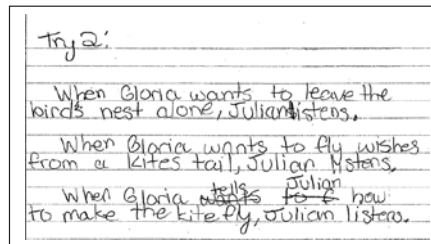 Try 2:
When Gloria wants to leave the
birds nest alone, Julian listens.
When Gloria wants to fly wishes
from a kites tail, Julian listens.
When Gloria wants tells to f Julian how
to make the kite fly, Julian listens.